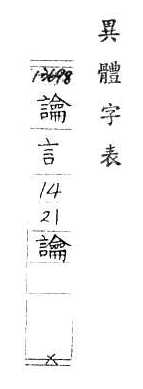 異體字表
13698
論
言
14
21
論
×